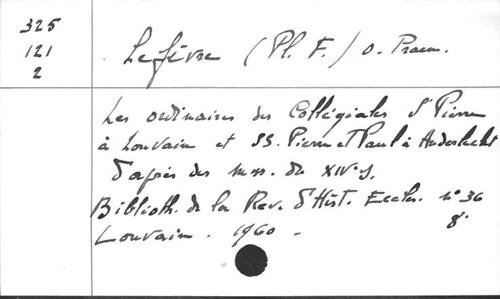 325
121
2
Lefèvre (Pl. F.) O. Praem.
Les ordinaires des Collégiales St Pierre
à Louvain et SS. Pierre et Paul à Anderlecht
d'après des mss. du XIVe s.
Biblioth. de la Rev. d'Hist. Eccles. n° 36
Louvain. 1960. 8°